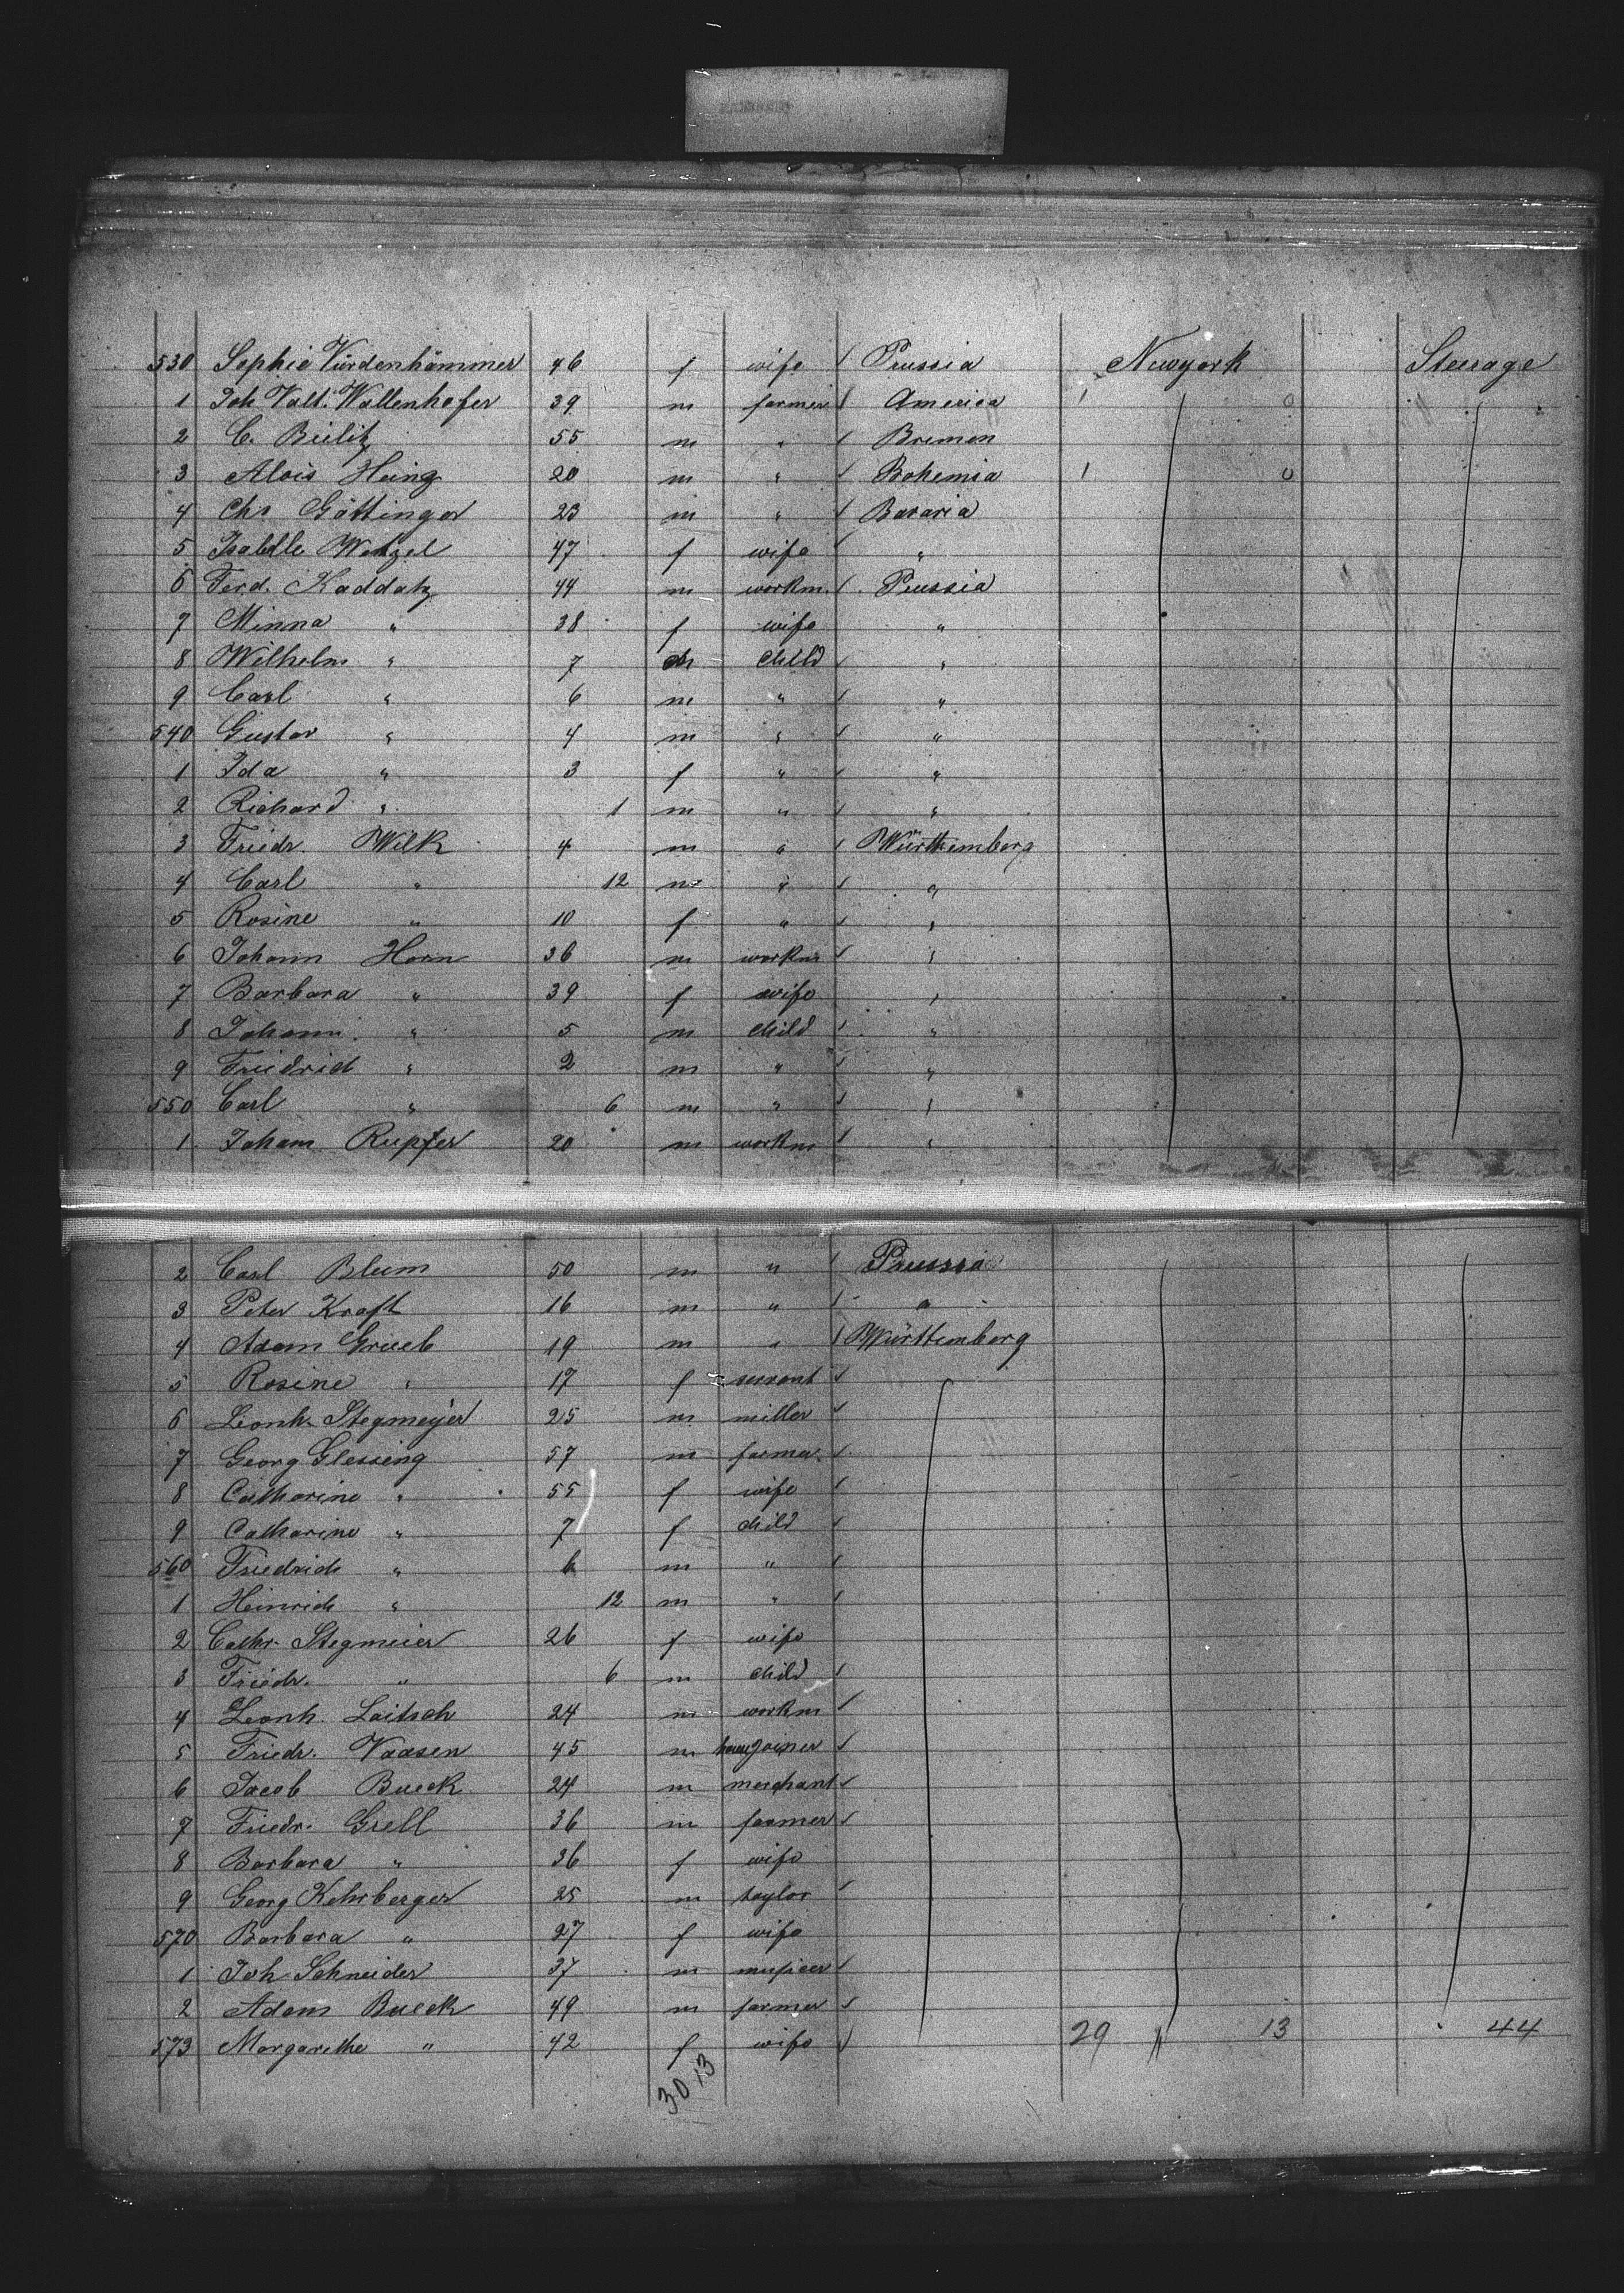 530 Sophie Vürdenhämmer 46 f wife / Prussia Newyork Steerage
1 Joh Valt. Wallenhofer 39 m farmer / America 1 0
2 C. Bielitz 55 m " / Bremen
3 Alois Heing 20 m " / Bohemia 1 0
4 Chr Göttinger 23 m " / Bavaria
5 Isabelle Wetzel 47 f wife / "
6 Ferd. Kaddatz 44 m workm. / Prussia
7 Minna " 38 f wife "
8 Wilhelm " 7 m child / "
9 Carl " 6 m " / "
540 Gustav " 4 m " / "
1 Ida " 3 f " / "
2 Richard " 1 m " / "
3 Friedr. Wilk 4 m " / Württemberg
4 Carl " 12 m " / "
5 Rosine " 10 f " / "
6 Johann Horn 36 m workm / "
7 Barbara " 39 f wife "
8 Johann " 5 m child / "
9 Friedrich " 2 m " / "
550 Carl " 6 m " / "
1 Johann Rupfer 20 m workm / "
2 Carl Blum 50 m " / Prussia
3 Peter Kraft 16 m " / "
4 Adam Grueb 19 m " / Württemberg
5 Rosine " 17 f servant /
6 Leonh. Stegmeyer 25 m miller /
7 Georg Glessing 57 m farmer /
8 Catharine " 55 f wife /
9 Catharine " 7 f child /
560 Friedrich " 6 m " /
1 Heinrich " 12 m " /
2 Cathr. Stegmeier 26 f wife
3 Friedr. " 6 m child /
4 Leonh. Laitsch 24 m workm /
5 Friedr. Vaasen 45 m joiner /
6 Jacob Bueck 24 m merchant /
7 Friedr. Grell 36 m farmer /
8 Barbara " 36 f wife
9 Georg Kehrberger 25 m taylor /
570 Barbara " 27 f wife
1 Joh Schneider 37 m musicer /
2 Adam Bueck 49 m farmer /
573 Margarethe " 42 f wife / 29 " 13 44
30 13